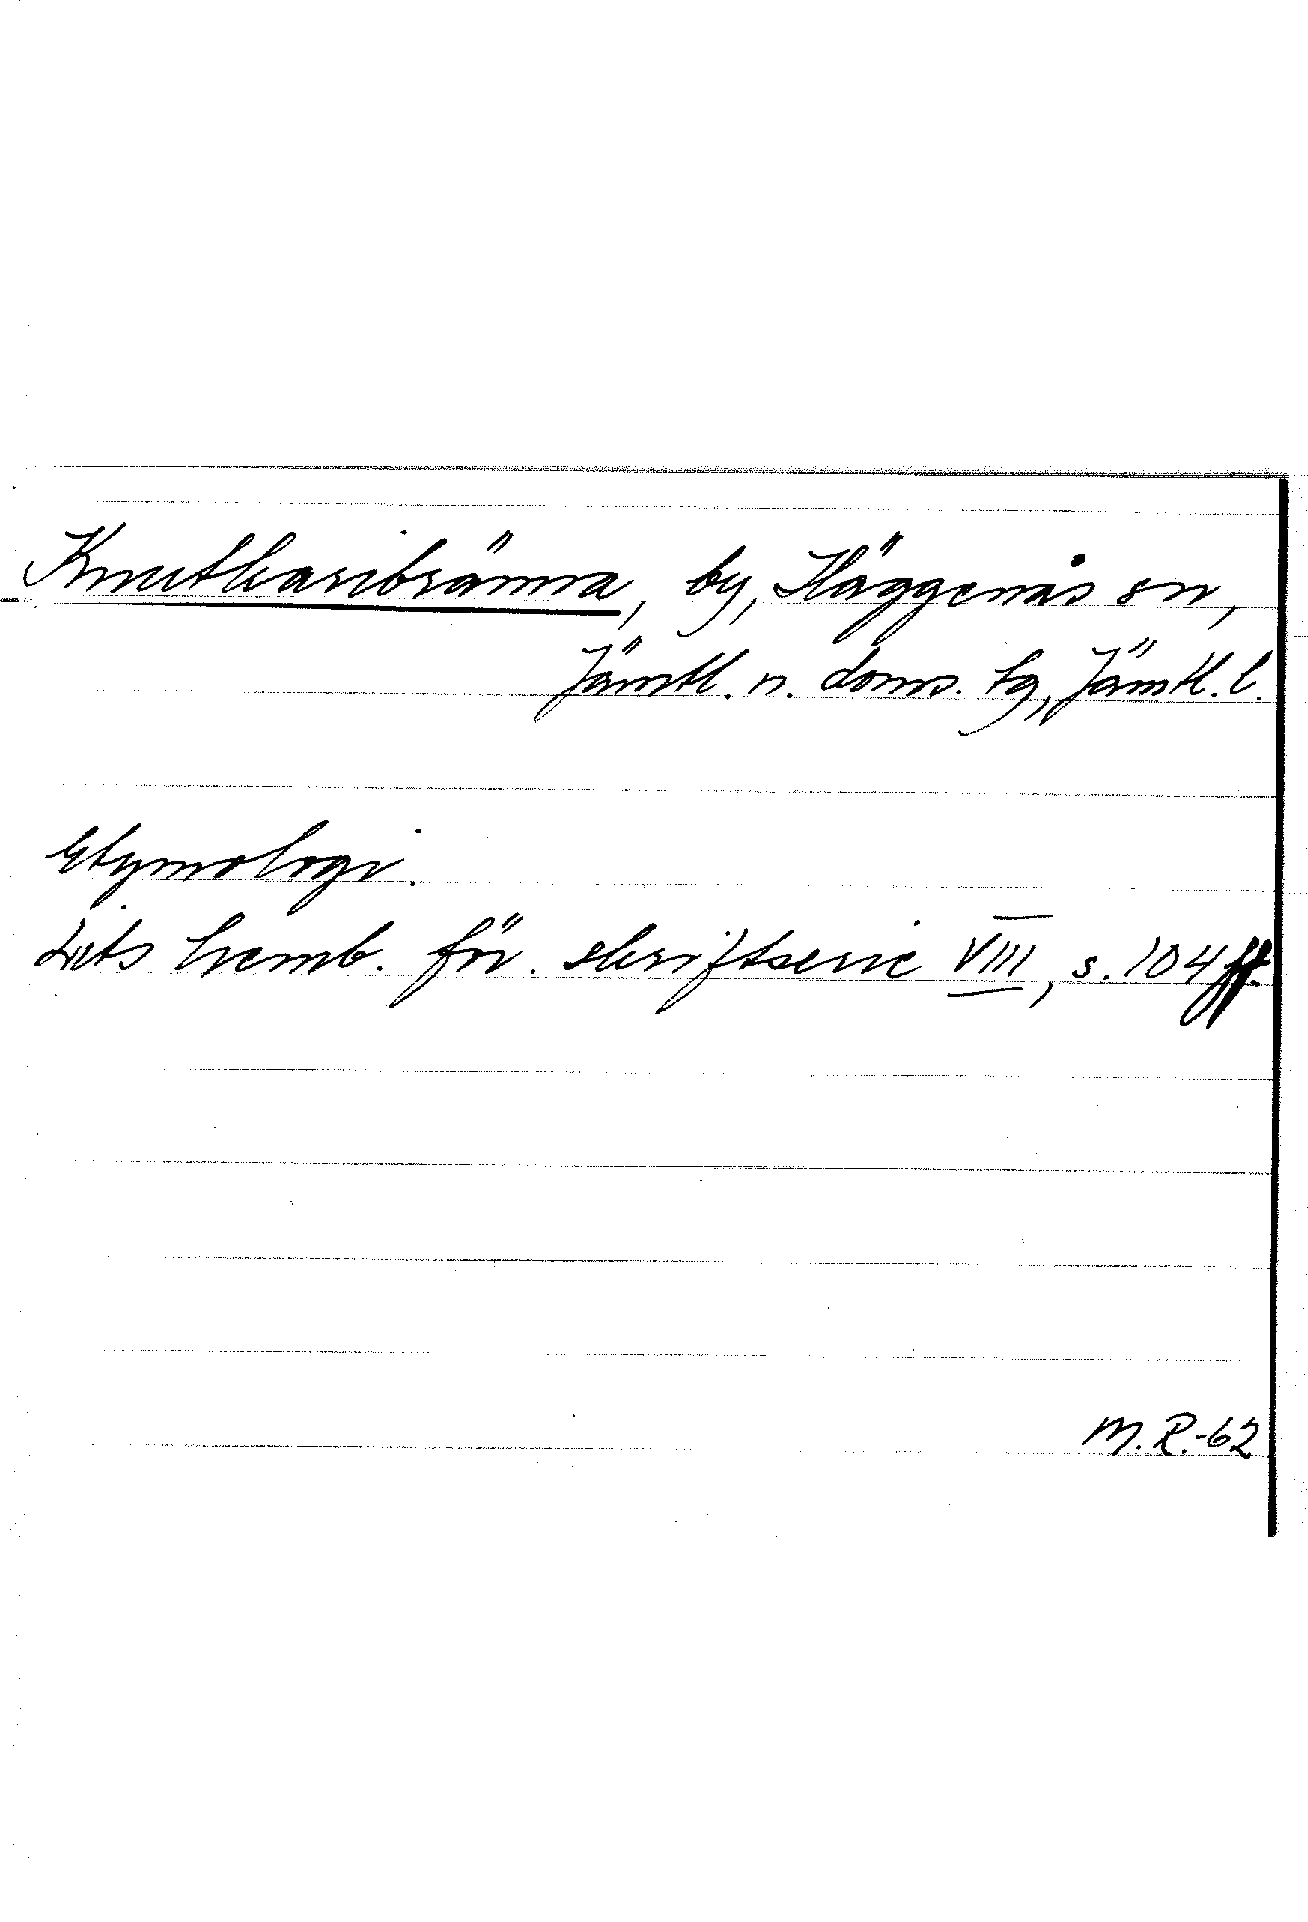 Knutkaribränna, by, Häggenås sn,
Jämtl. n. doms. tg, Jämtl. l.
Etymologi.
Lits hemb. för. skriftserie VIII, s. 104 ff.
M. R.-62